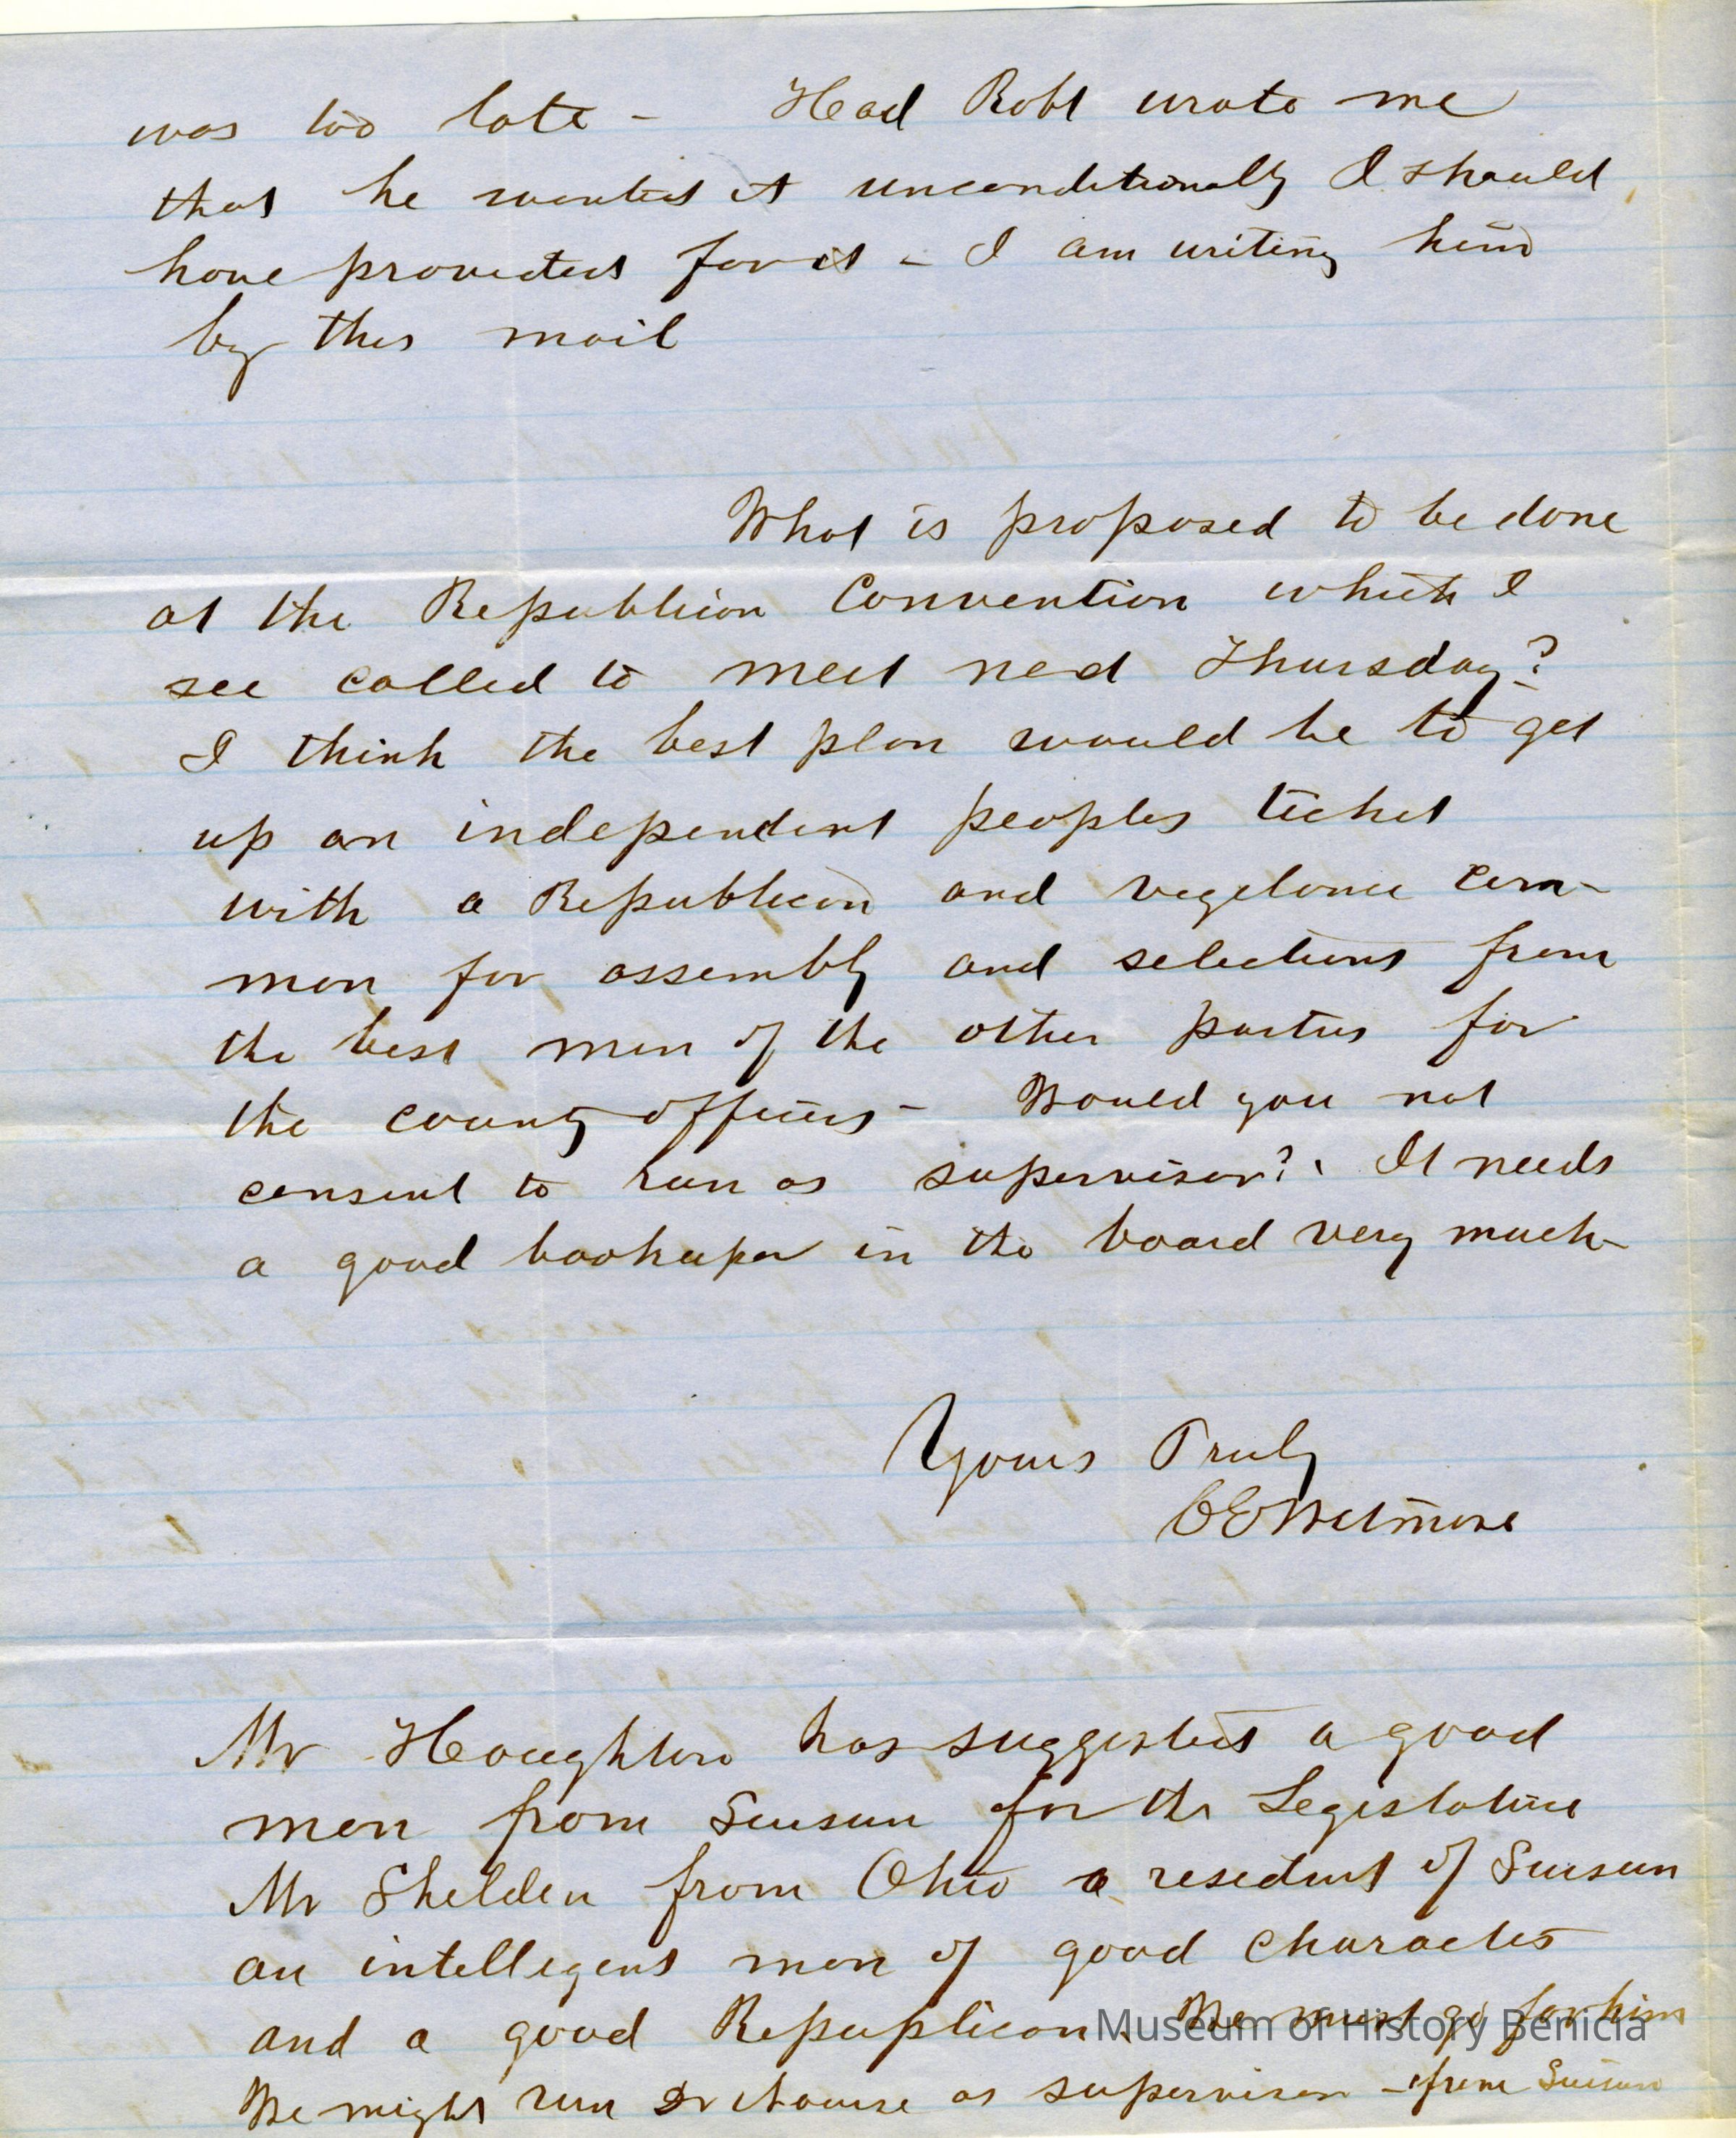 was too late - Had Robt wrote me
that he wanted it unconditionally I should
have provided for it - I am writing him
by this mail
What is proposed to be done
at the Republican Convention which I
see called to meet next Thursday?
I think the best plan would be to get
up an independent peoples ticket
with a Republican and vegelance com-
man for assembly and selections from
the best men of the other parties for
the county officers - Would you not
consent to run as supervisor? It needs
a good bookeeper in the board very much -
Yours Truly
C E Wetmore
Mr Houghton has suggested a good
man from Suisun for the Legislature
Mr Shelden from Ohio a resident of Suisun
an intellegent man of good character
and a good Repuplican. We must go for him
We might run Dr as supervisor - from Suisun
Museum of History Benicia